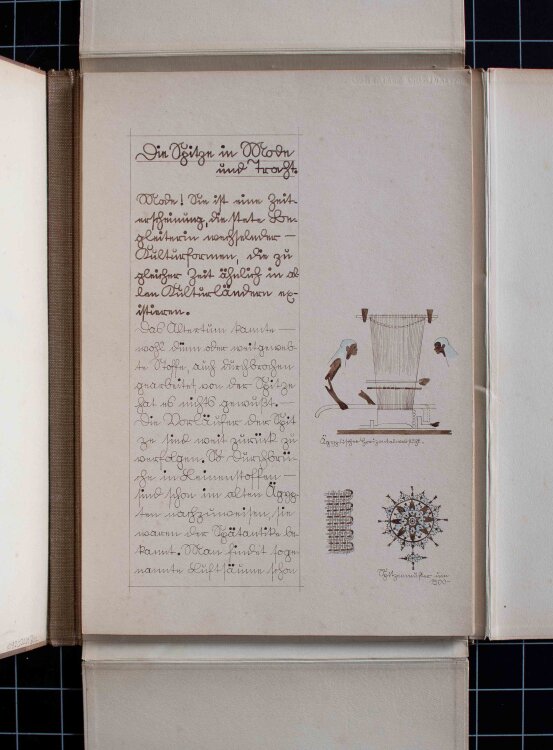 Die Spitze in Mode
und Tracht.
Mode! Sie ist eine Zeit-
erscheinung, die stete Be-
gleiterin wechselnder –
Kulturformen, die zu
gleicher Zeit ähnlich in al
len Kulturländern ex-
istieren.
Das Altertum kannte –
wohl dünn oder weitgeweb-
te Stoffe, auch durchbrochen
gearbeitet, von der Spitze
hat es nichts gewußt. –
Die Vorläufer der Spit
ze sind weit zurück zu
verfolgen. So Durchbrü-
che in Leinenstoffen –
sind schon im alten Ägyp-
ten nachzuweisen, sie
waren der Spätantike be-
kannt. Man findet soge-
nannte Luftsäume schon
Ägyptischer Horizontalwebstuhl.
Spitzenmuster um
1500–